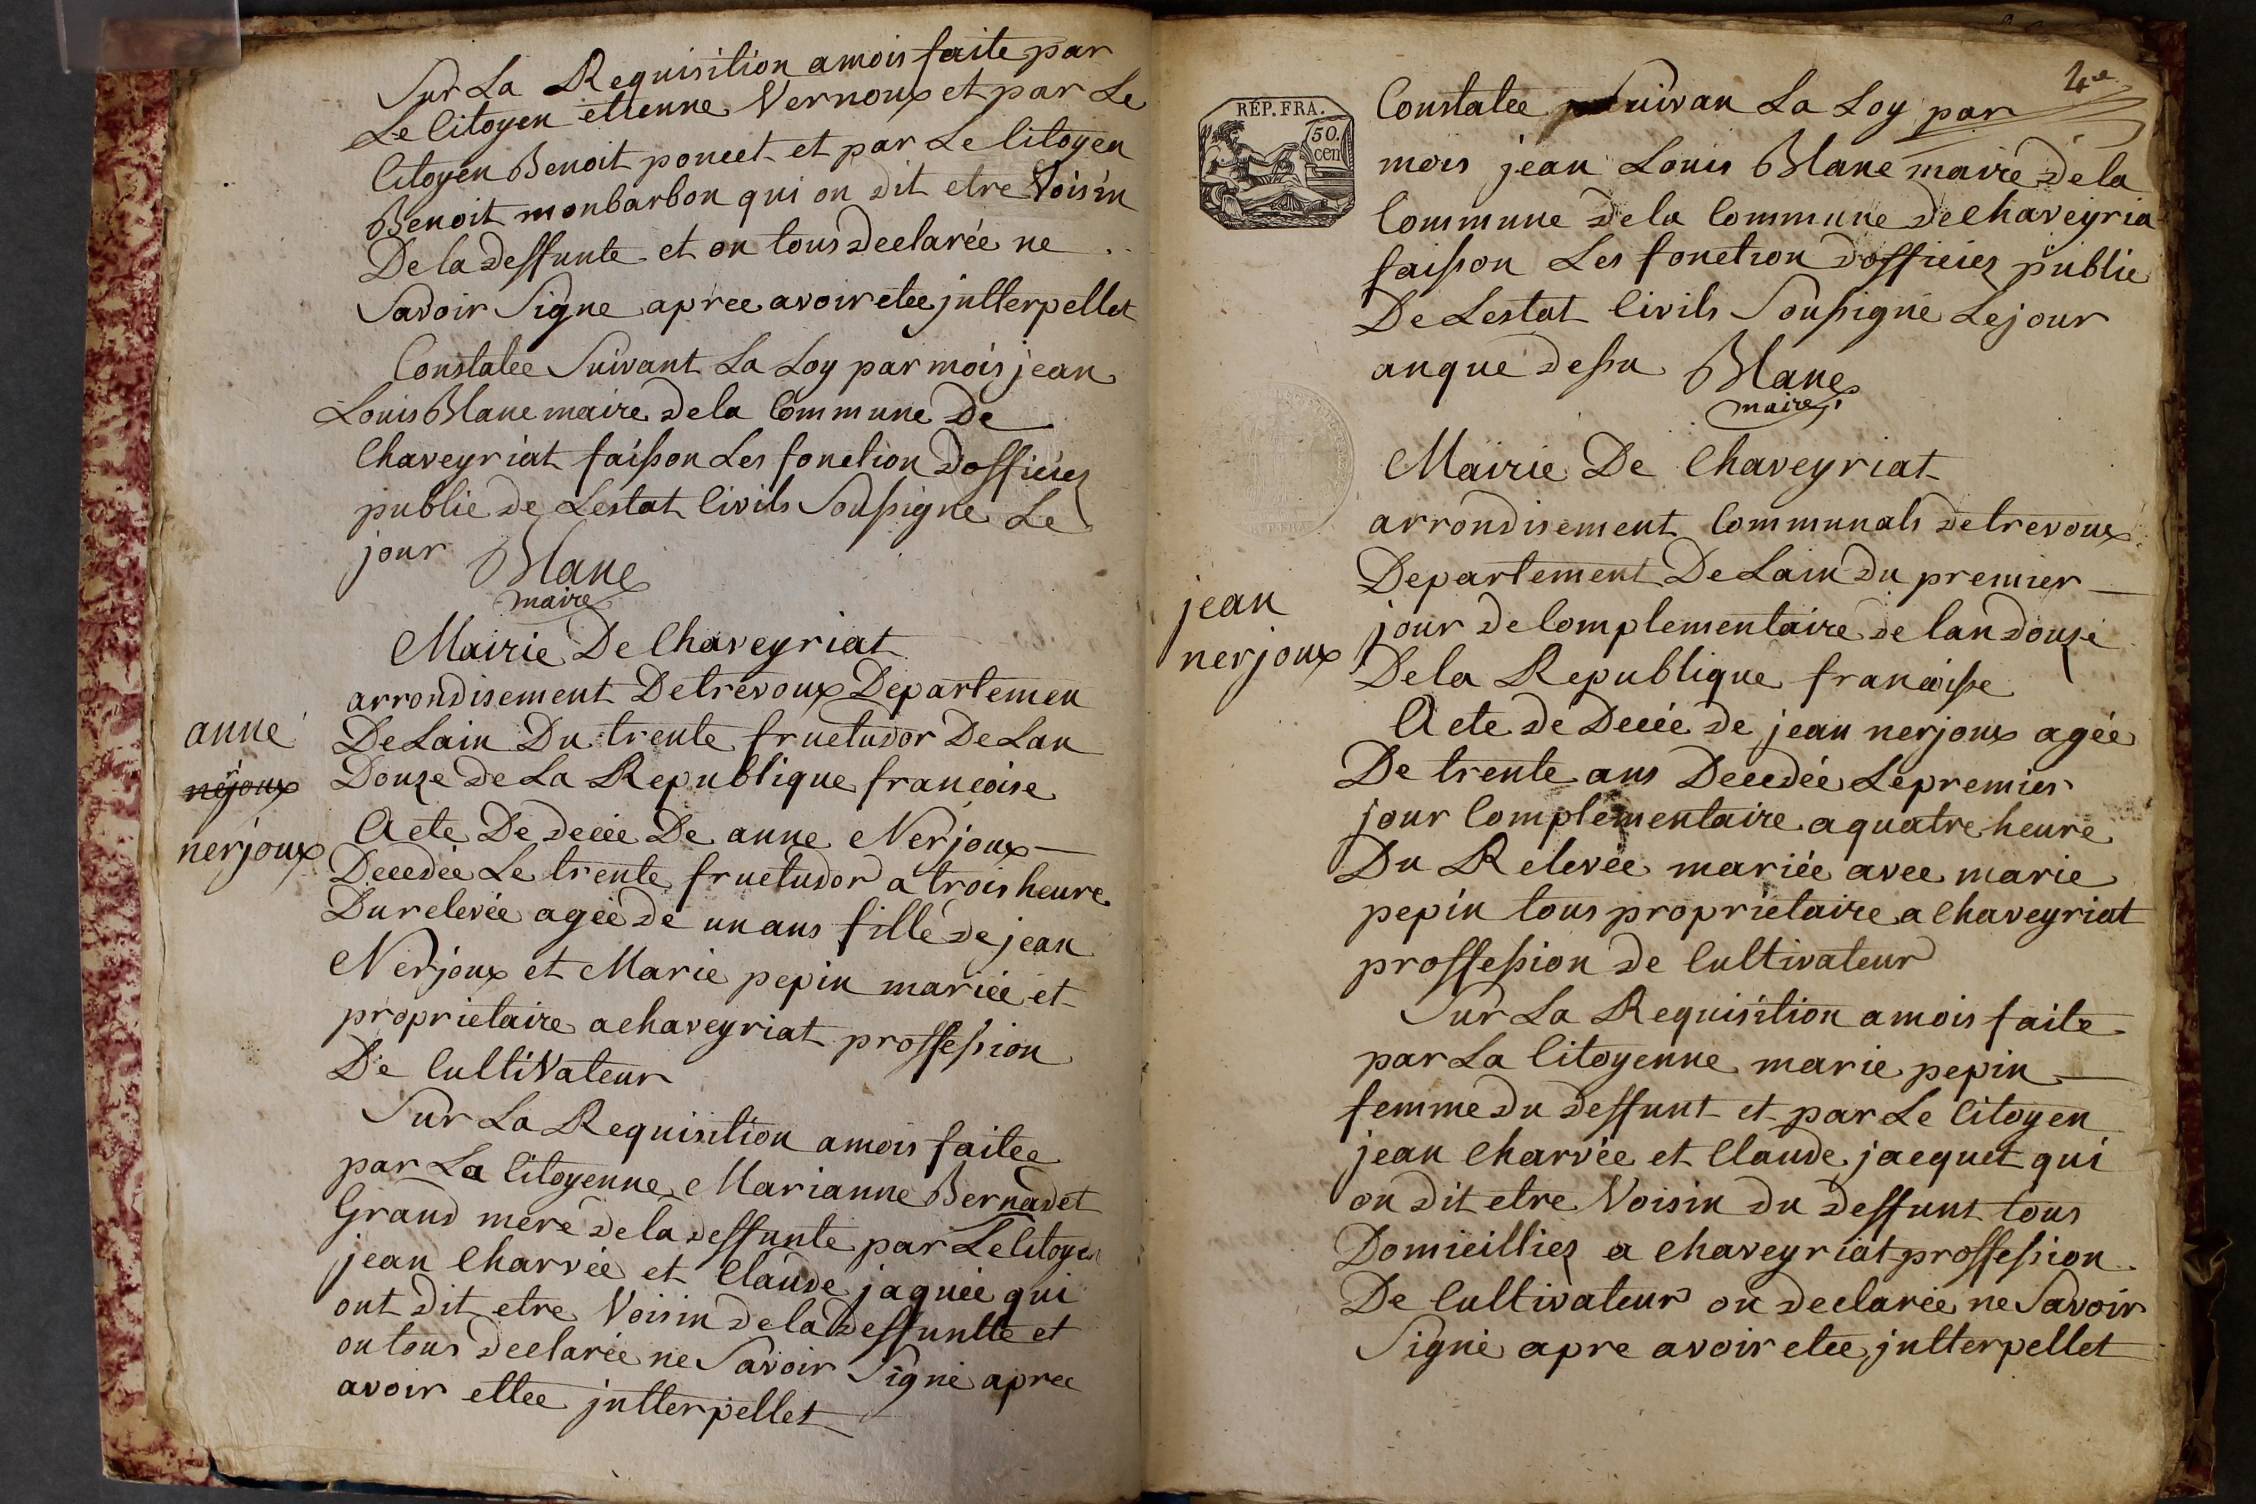 Sur La Requisition a mois faite par
Le Citoyen etienne Vernoux et par Le
Citoyen Benoit poncet et par Le Citoyen
Benoit monbarbon qui on dit etre Voisin
De la deffunte et on tous declarée ne
Savoir Signe apree avoir etee jntterpellet
Constatee Suivant La Loy par mois jean
Louis Blanc maire de la Commune De
Chaveyriat faisson Les fonction d'officiez
public de Lestat Civils Soussigne Le
jour Blanc
maire
Mairie De Chaveyriat
arrondisement De trevoux Departemen
De Lain Du trente fructudor De Lan
Douze de La Republique francoise
anne
nerjoux
nerjoux
Acte De decée De anne Nerjoux
Decedée Le trente fructudor a trois heure
Du relevée agée de un ans fille de jean
Nerjoux et Marie pepin mariée et
proprietaire a chaveyriat proffession
De Cultivateur
Sur La Requisition a mois faitee
par La Citoyenne Marianne Bernadet
Grand mere de la deffunte par Le Citoyen
jean Charvée et Claude jaquée qui
ont dit etre Voisin de la deffuntte et
on tous declarée ne Savoir Signe apree
avoir ettee jntterpellet
4e
RÉP. FRA.
50.
cen
Constatee suivan La Loy par
mois jean Louis Blanc maire de la
Commune de la Commune de Chaveyria
faisson Les fonction d'officiez public
De Lestat Civils Soussigné Le jour
an que dessu Blanc
maire
Mairie De Chaveyriat
arrondisement Communals de trevoux
Departement De Lain du premier
jour de Complementaire de lan douze
De la Republique francoisse
jean
nerjoux
Acte de Decée de jean nerjoux agée
De trente ans Decedée Le premier
jour Complementaire a quatre heure
Du Relevée mariée avec marie
pepin tous proprietaire a Chaveyriat
proffession de Cultivateur
Sur La Requisition a mois faite
par La Citoyenne marie pepin
femme du deffunt et par Le Citoyen
jean Charvée et Claude jacquet qui
on dit etre Voisin du deffunt tous
Domicilliez a Chaveyriat proffession
De Cultivateur on declarée ne Savoir
Signe apre avoir etee jntterpellet